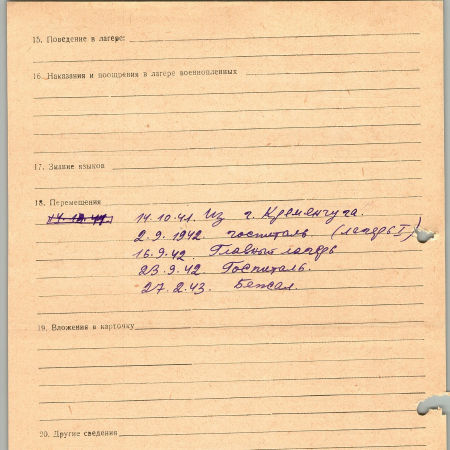 15. Поведение в лагере:
16. Наказания и поощрения в лагере военнопленных
17. Знание языков
18. Перемещения
14.10.41. Из г. Кременчуга.
2.9.1942. госпиталь (лагерь I)
16.9.42. Главный лагерь
23.9.42 Госпиталь.
27.2.43. Бежал.
19. Вложения в карточку
20. Другие сведения